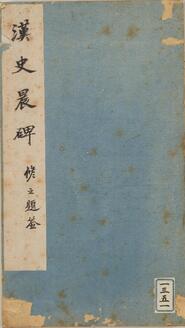 漢史晨碑
修之題簽
一三五一